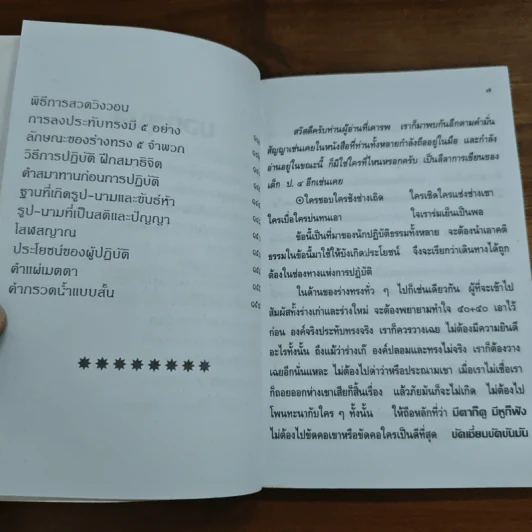 พิธีการสวดวิงวอน
การลงประทับทรงมี ๕ อย่าง
ลักษณะของร่างทรง ๕ จำพวก
วิธีการปฏิบัติ ฝึกสมาธิจิต
คำสมาทานก่อนการปฏิบัติ
ฐานที่เกิดรูป-นามและขันธ์ห้า
รูป-นามที่เป็นสติและปัญญา
โสฬสญาณ
ประโยชน์ของผู้ปฏิบัติ
คำแผ่เมตตา
คำกรวดน้ำแบบสั้น
สวัสดีครับท่านผู้อ่านที่เคารพ เราก็มาพบกันอีกตามคำมั่น
สัญญาเช่นเคยในหนังสือที่ท่านทั้งหลายกำลังถืออยู่ในมือ และกำลัง
อ่านอยู่ในขณะนี้ ก็มิใช่ใครที่ไหนหรอกครับ เป็นลีลาการเขียนของ
เด็ก ป. ๔ อีกเช่นเคย
ใครชอบใครชังช่างเถิด ใครเชิดใครแช่งช่างเขา
ใครเบื่อใครบ่นทนเอา ใจเราร่มเย็นเป็นพอ
ข้อนี้เป็นที่มาของนักปฏิบัติธรรมทั้งหลาย จะต้องนำเอาคติ
ธรรมในข้อนี้มาใช้ให้บังเกิดประโยชน์ จึงจะเรียกว่าเดินทางได้ถูก
ต้องในช่องทางแห่งการปฏิบัติ
ในด้านของร่างทรงทั่ว ๆ ไปก็เช่นเดียวกัน ผู้ที่จะเข้าไป
สัมผัสทั้งร่างเก่าและร่างใหม่ จะต้องพยายามทำใจ ๕๐+๕๐ เอาไว้
ก่อน องค์จริงประทับทรงจริง เราก็ควรวางเฉย ไม่ต้องมีความยินดี
อะไรทั้งนั้น ถึงแม้ว่าร่างเก๊ องค์ปลอมและทรงไม่จริง เราก็ต้องวาง
เฉยอีกนั่นแหละ ไม่ต้องไปด่าว่าหรือประณามเขา เมื่อเราไม่เชื่อเรา
ก็ถอยออกห่างเขาเสียก็สิ้นเรื่อง แล้วภัยมันก็จะไม่เกิด ไม่ต้องไป
โพนทะนากับใคร ๆ ทั้งนั้น ให้ถือหลักที่ว่า มีตาก็ดู มีหูก็ฟัง
ไม่ต้องไปขัดคอเขาหรือขัดคอใครเป็นดีที่สุด ขัดเชี่ยนขัดขันมัน